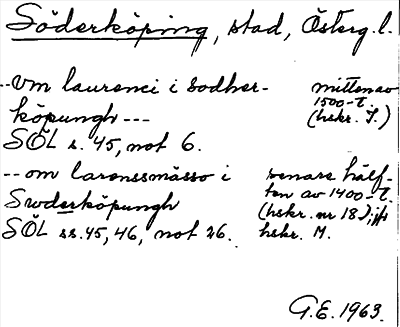 Söderköping, stad, Österg.l.
--vm laurenci i sodher- mitten av
köpungh --- 1500-t.
(hskr. J.)
SÖL s. 45, not 6.
-- om laronssmässo i senare hälf-
Swderköpungh ten av 1400-t.
(hskr. nr 18), jfr
SÖL ss. 45, 46, not 26. hskr. M.
G.E. 1963.